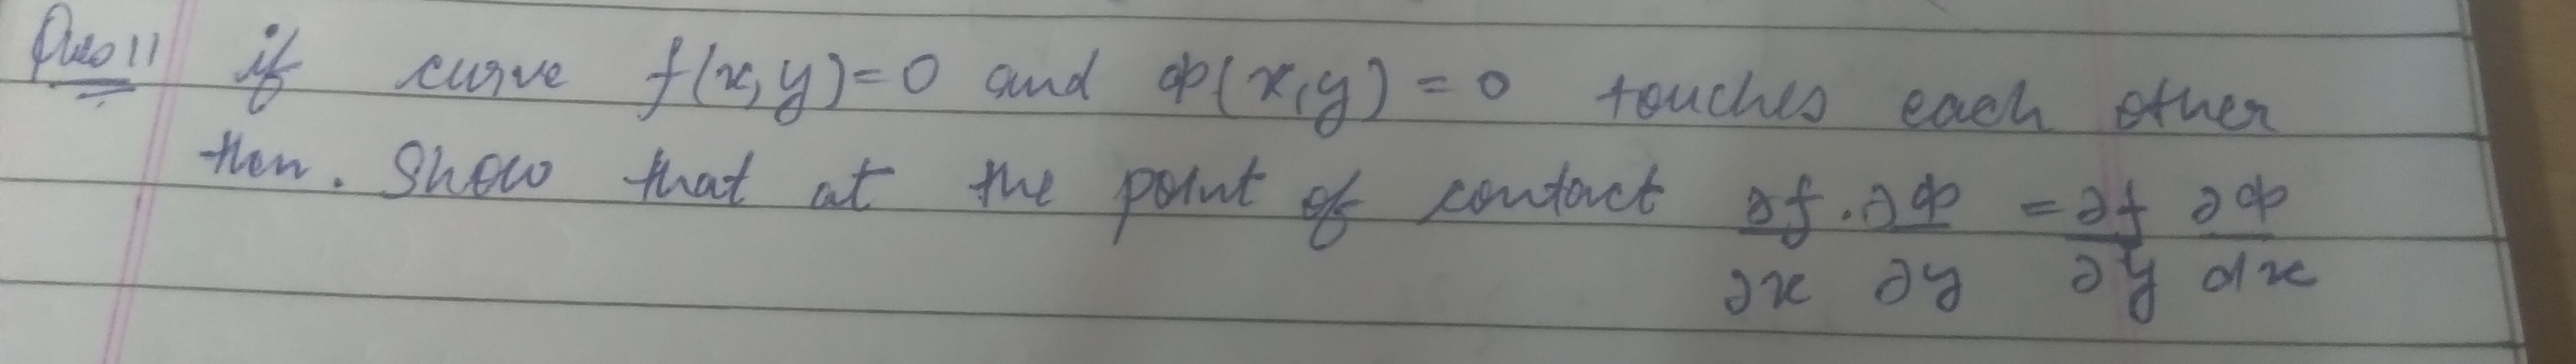 Ques 11 if curve f(x,y)=0 and ф(x,y)=0 touches each other
then. Show that at the point of contact ∂f/∂x . ∂ф/∂y = ∂f/∂y ∂ф/dx